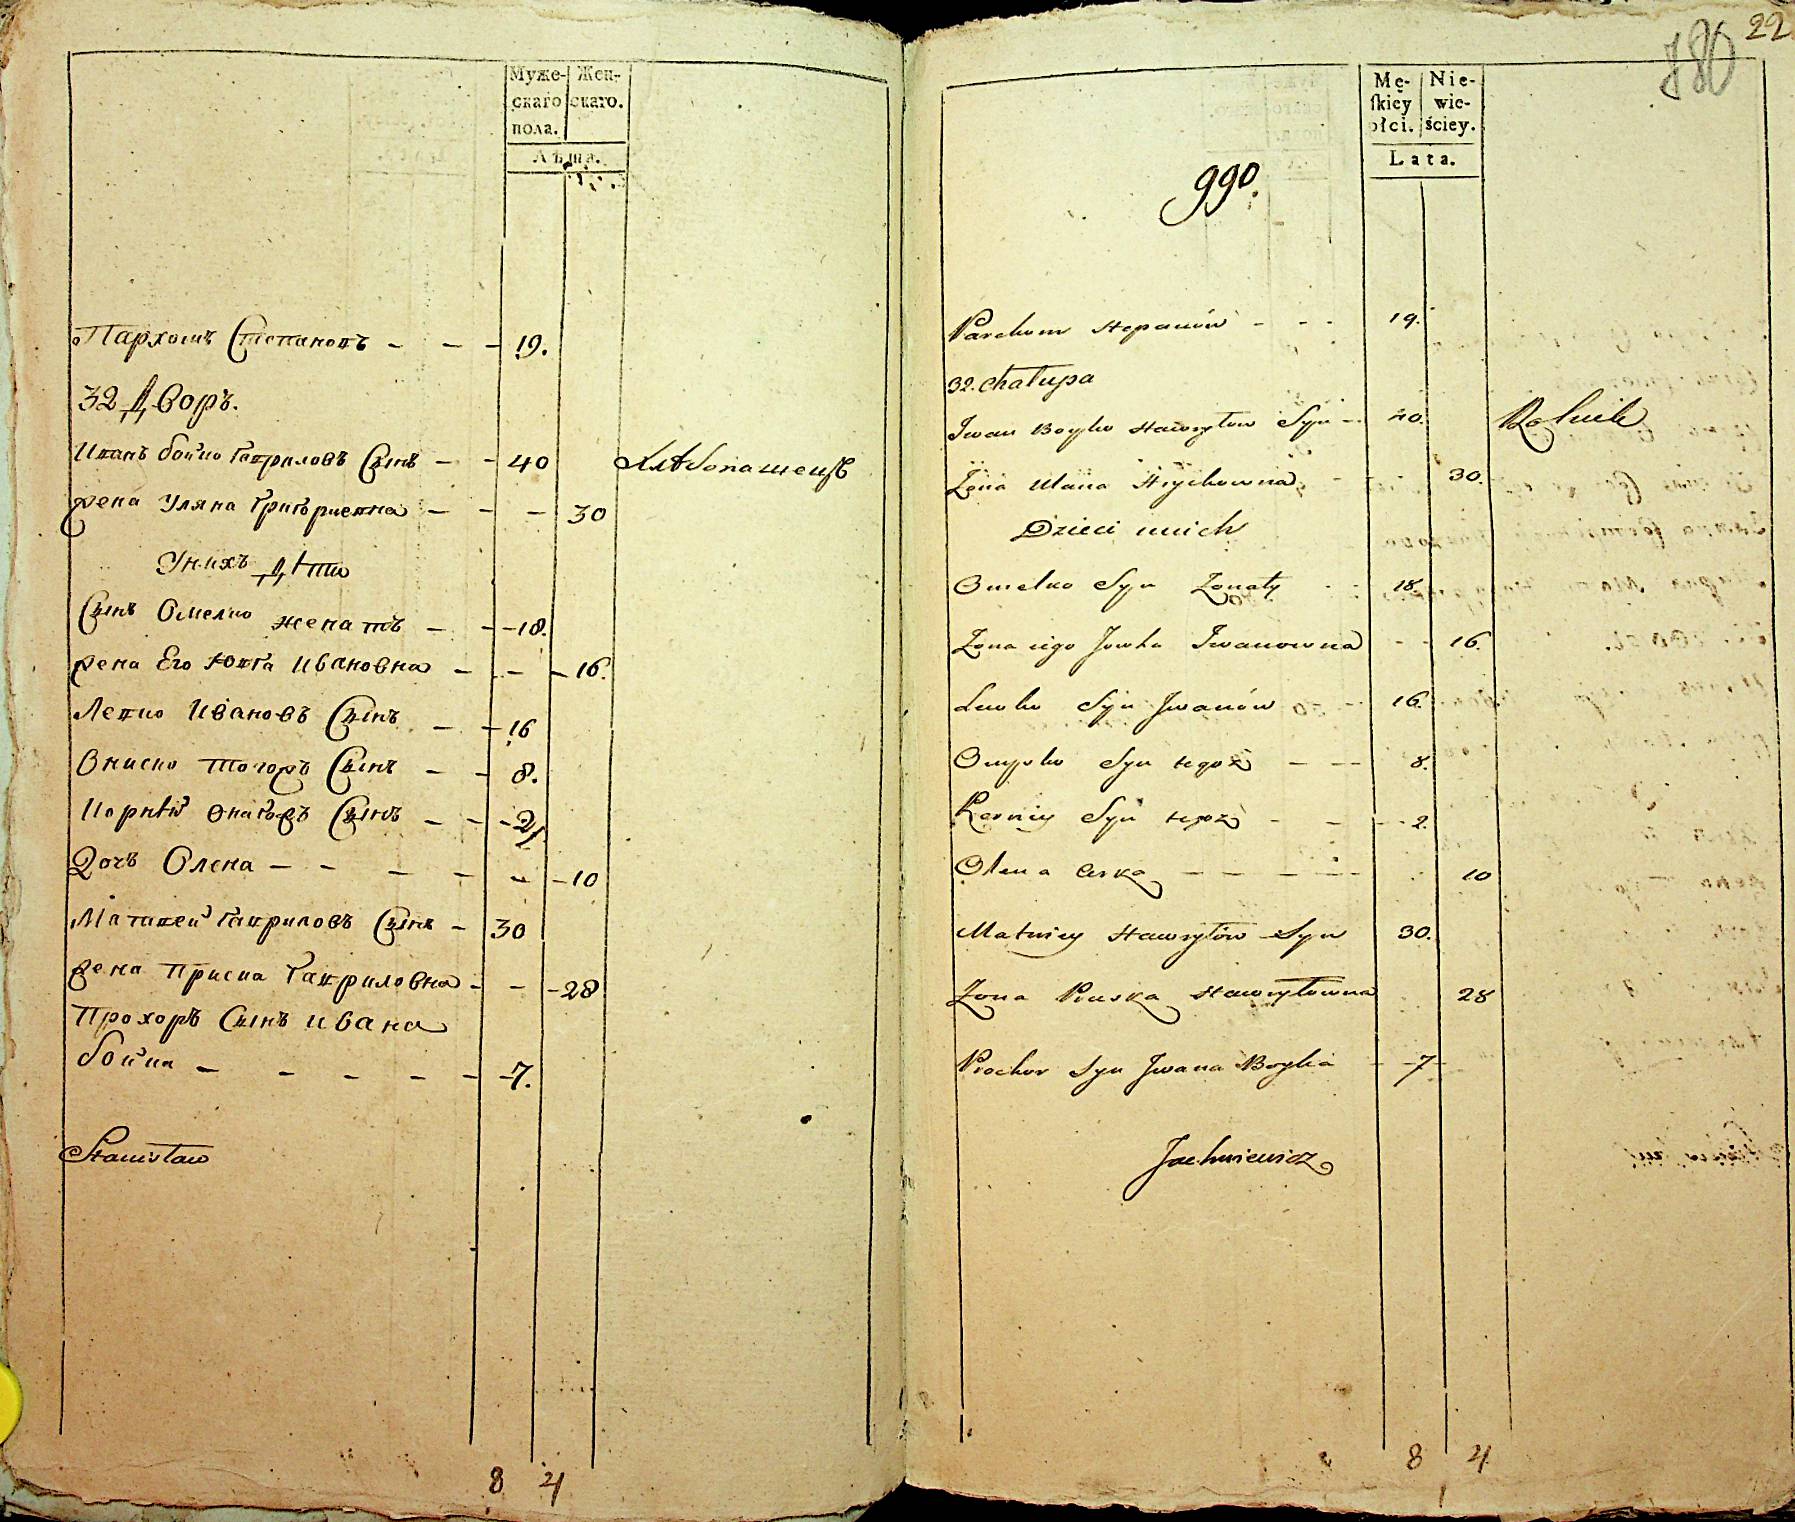 Муже- Жен-
скаго скаго.
пола.
Лѣта.
Пархомъ Степановъ - - - 19.
32 Дворъ.
Иванъ Бойко Гавриловъ Сынъ - - 40 Хлѣбопашецъ
жена Уляна Григориевна - - - 30
Унихъ Дѣти
Сынъ Омелко женатъ - - - 18.
жена Его Ювга Ивановна - - - 16.
Левко Ивановъ Сынъ - - 16
Ониско тогожъ Сынъ - - 8.
Корнѣй Сынъ - - - 2
Дочъ Олена - - - - - - 10
Матвей Гавриловъ Сынъ - 30
жена Приска Гавриловна - - - 28
Прохоръ Сынъ Ивана
Бойка - - - - - - 7.
Stanisław
8 4
780 22
Mę- Nie-
skiey wie-
płci. ściey.
Lata.
990.
Parchom Stepanów - - - 19.
32. Chałupa
Iwan Boyko Hawryłow Syn - - 40. Rolnik
Żona Ulana Hrychowna - - 30.
Dzieci unich
Omelko Syn Żonaty - - 18
Żona iego Jowha Iwanowna - - 16.
Lewko Syn Jwanów - - 16.
Onysko Syn tegoż - - - 8.
Korniy Syn tegoż - - - - 2.
Olena Curka - - - - - - 10
Matwiey Hawryłów Syn 30.
Żona Pruska Hawryłowna 28
Prochor Syn Jwana Boyka - - 7 -
Jachniewicz
8 4